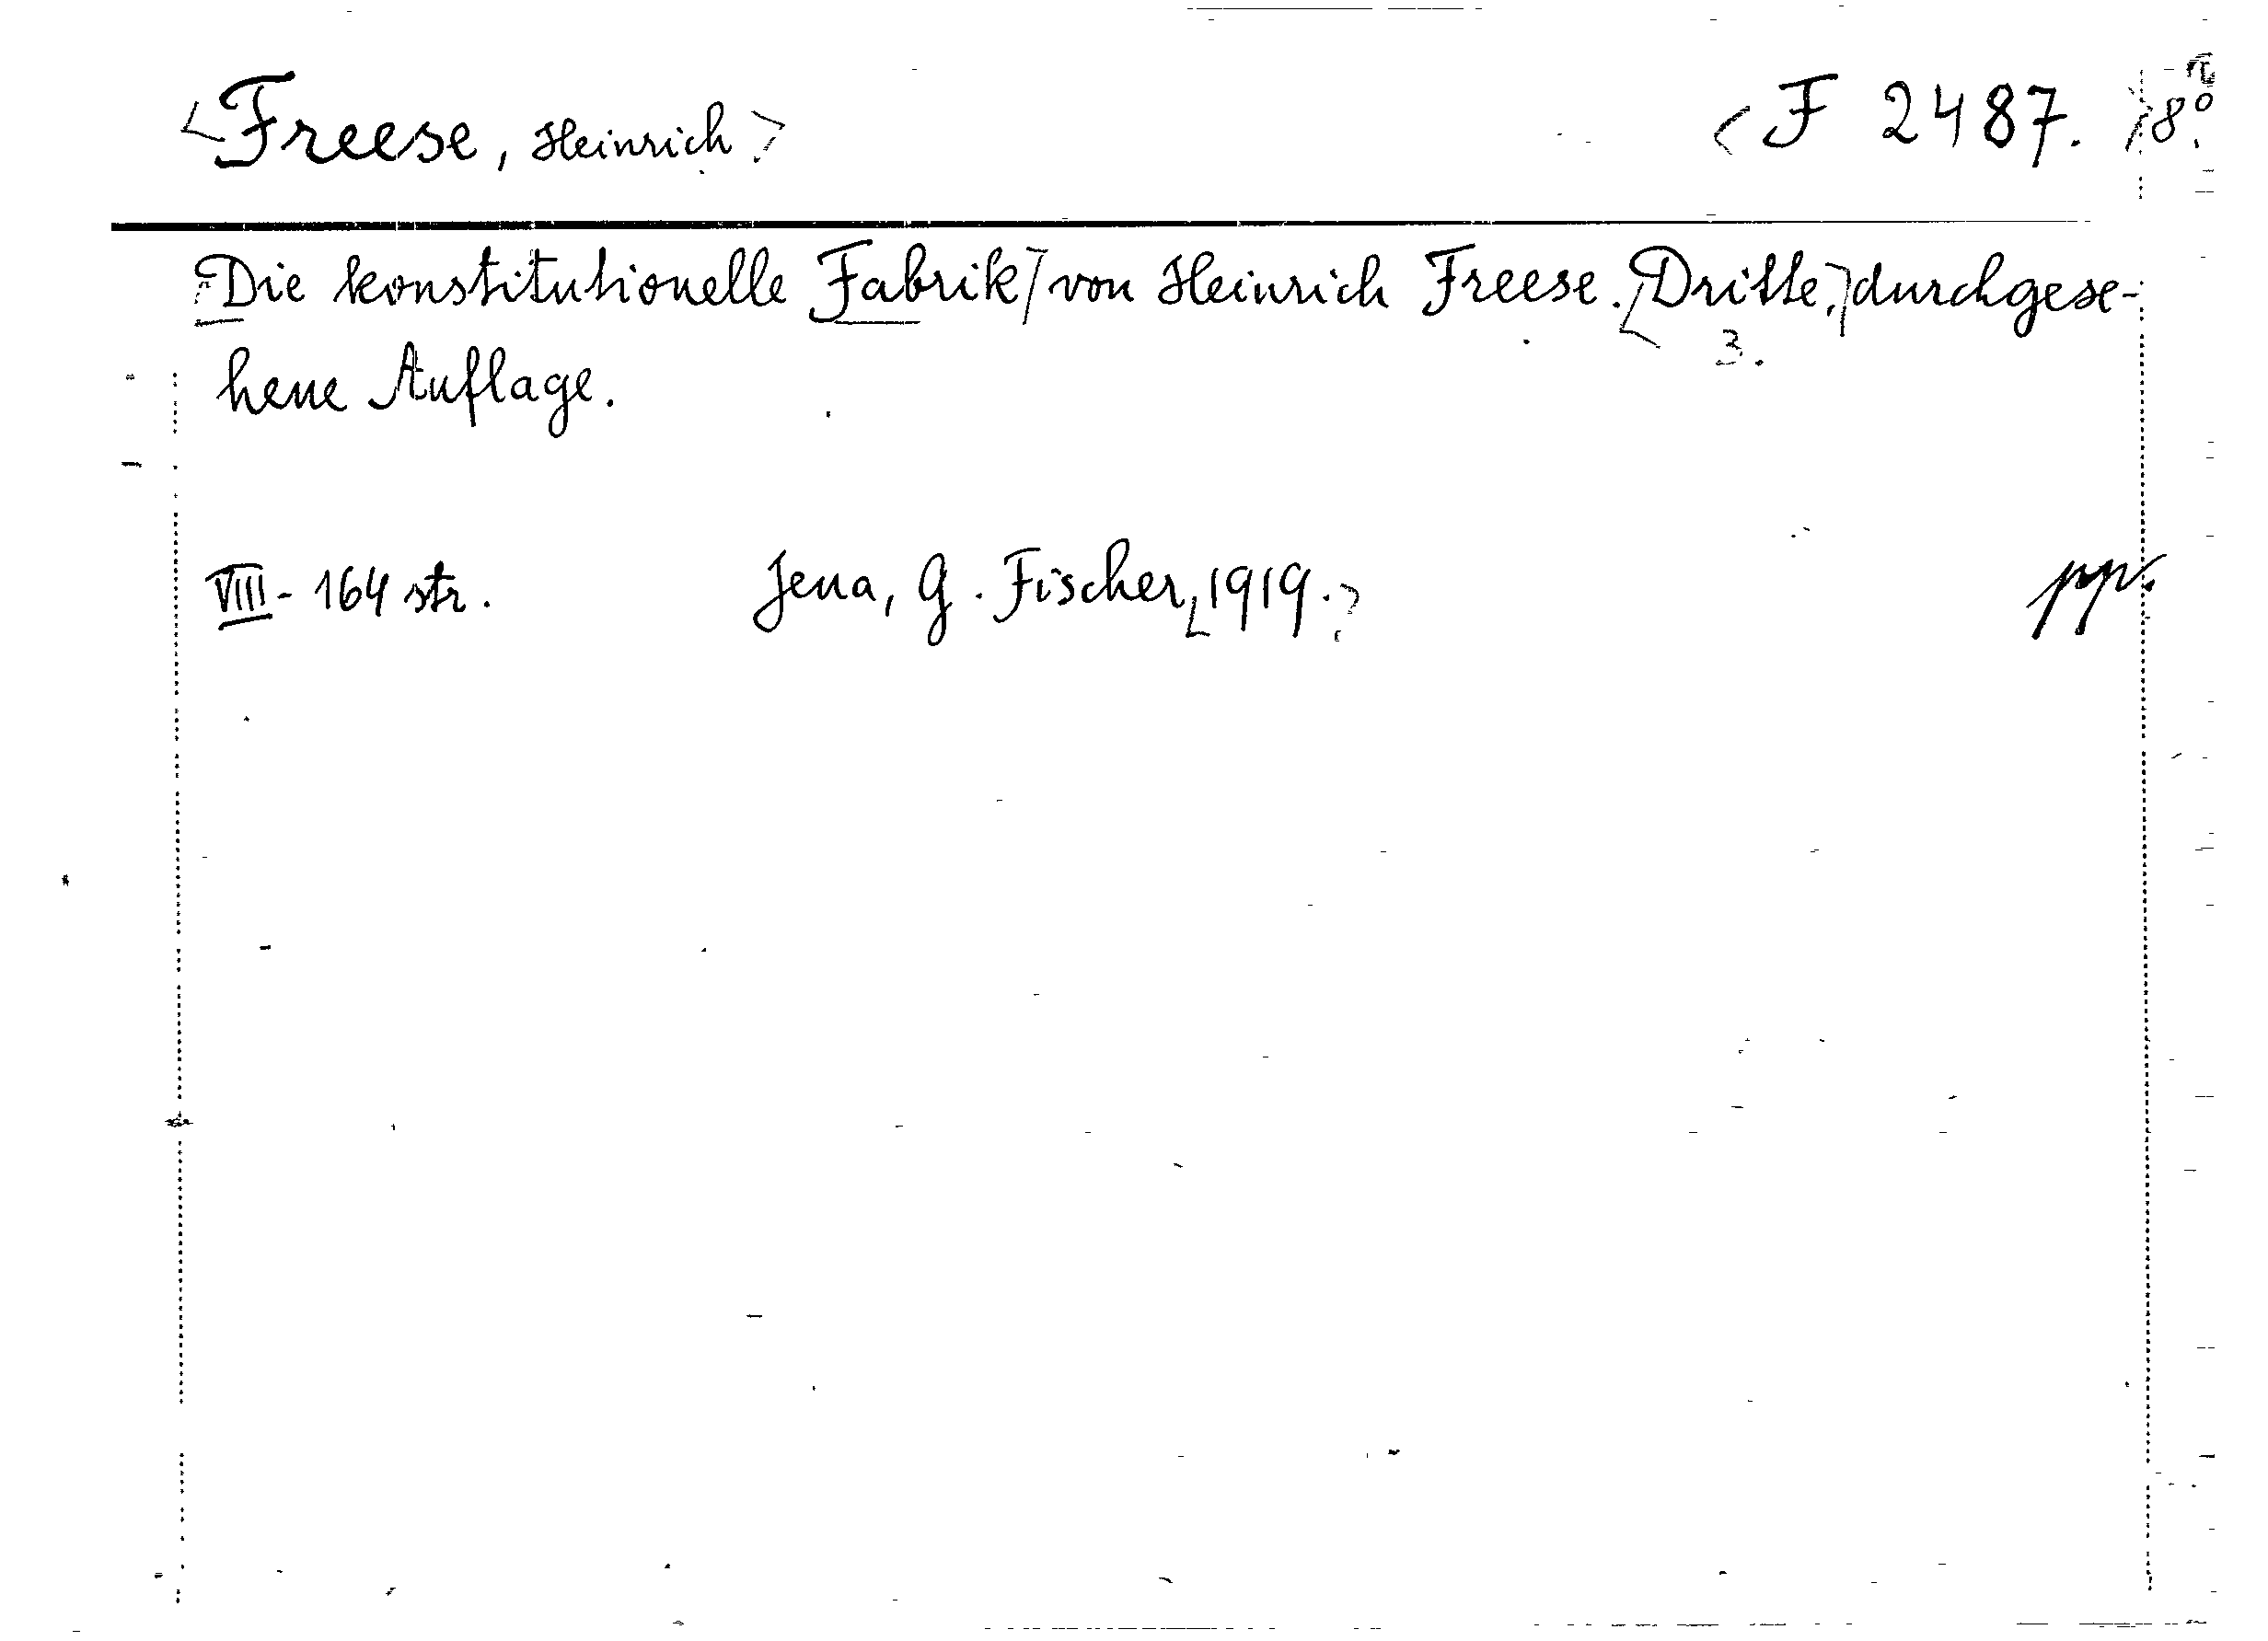 <Freese, Heinrich> <F 2487.> 8º.
Die konstitutionelle Fabrik/ von Heinrich Freese. [Dritte,] durchgese-
3.
hene Auflage.
VIII - 164 str. Jena, G. Fischer, 1919.